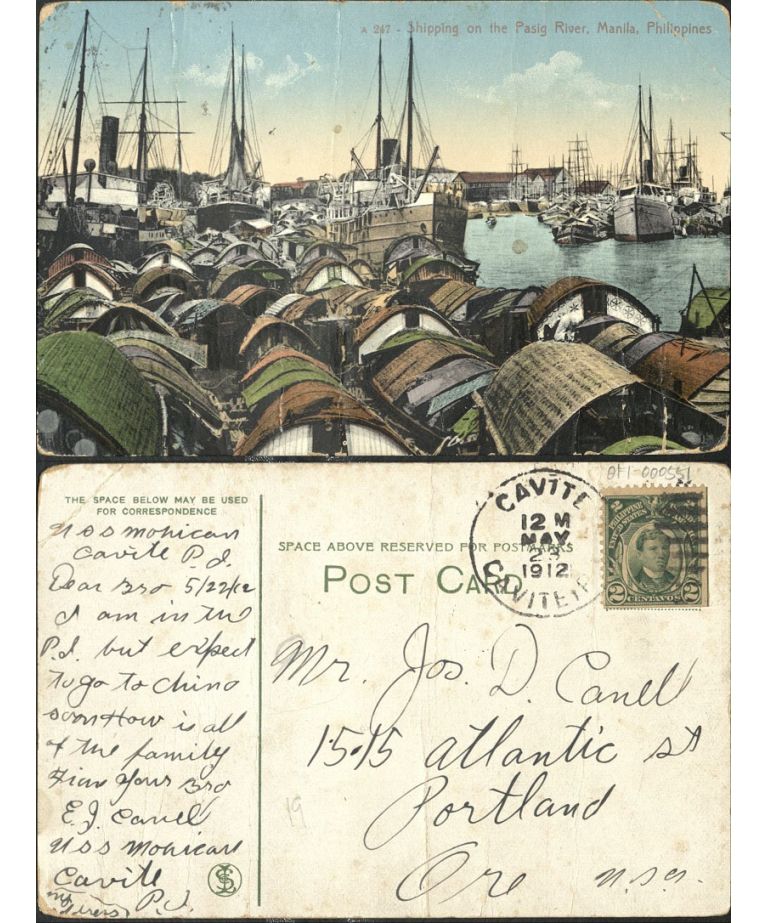 A 247 - Shipping on the Pasig River, Manila, Philippines
THE SPACE BELOW MAY BE USED
FOR CORRESPONDENCE
USS Mohican
Cavite P.I.
Dear Bro 5/22/12
I am in the
P.I. but expect
to go to China
soon How is all
of the family
Your Bro
E.J. Canell
USS Mohican
Cavite
P.I.
SPACE ABOVE RESERVED FOR POSTMARKS
POST CARD
CAVITE
12 M
MAY
23
1912
CAVITE, P.I.
0F1-000551
PHILIPPINE
UNITED STATES
2 CENTAVOS 2
Mr. Jos. D. Canell
1515 Atlantic st
Portland
Ore U.S.A.
19